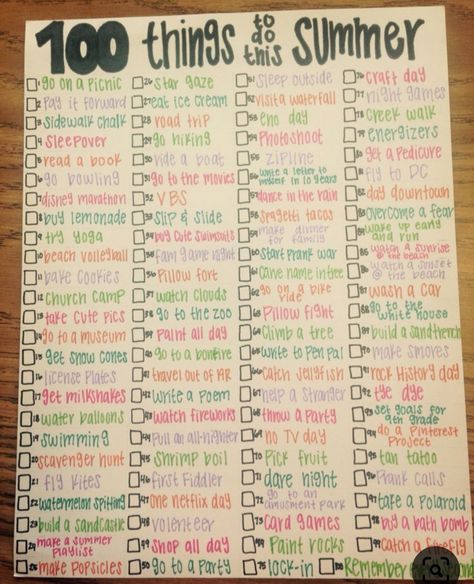 100 things to do this summer
1 go on a picnic
2 pay it forward
3 sidewalk chalk
4 sleepover
5 read a book
6 go bowling
7 disney marathon
8 buy lemonade
9 try yoga
10 beach volleyball
11 bake cookies
12 church camp
13 take cute pics
14 go to a museum
15 get snow cones
16 license plates
17 get milkshakes
18 water balloons
19 swimming
20 scavenger hunt
21 fly kites
22 watermelon spitting
23 build a sandcastle
24 make a summer playlist
25 make popsicles
26 star gaze
27 eat ice cream
28 road trip
29 go hiking
30 ride a boat
31 go to the movies
32 VBS
33 slip & slide
34 buy cute swimsuits
35 fam game night
36 pillow fort
37 watch clouds
38 go to the zoo
39 paint all day
40 go to a bonfire
41 travel out of AR
42 write a poem
43 watch fireworks
44 pull an all-nighter
45 shrimp boil
46 first fiddler
47 one netflix day
48 volenteer
49 shop all day
50 go to a party
51 sleep outside
52 visit a waterfall
53 eno day
54 photoshoot
55 zipline
56 write a letter to myself in 10 years
57 dance in the rain
58 spagetti tacos
59 make dinner for family
60 start prank war
61 carve name in tree
62 go on a bike ride
63 pillow fight
64 climb a tree
65 write to pen pal
66 catch jellyfish
67 help a stranger
68 throw a party
69 no TV day
70 pick fruit
71 dare night
72 go to an amusment park
73 card games
74 paint rocks
75 lock-in
76 craft day
77 night games
78 creek walk
79 energizers
80 get a pedicure
81 fly to DC
82 day downtown
83 overcome a fear
84 wake up early and run
85 watch a sunrise @ the beach
86 watch a sunset @ the beach
87 wash a car
88 go to the white house
89 build a sandtrench
90 make smores
91 rock history day
92 tye dye
93 set goals for 9th grade
94 do a pinterest project
95 tan tatoo
96 prank calls
97 take a polaroid
98 buy a bath bomb
99 catch a firefly
100 Remember